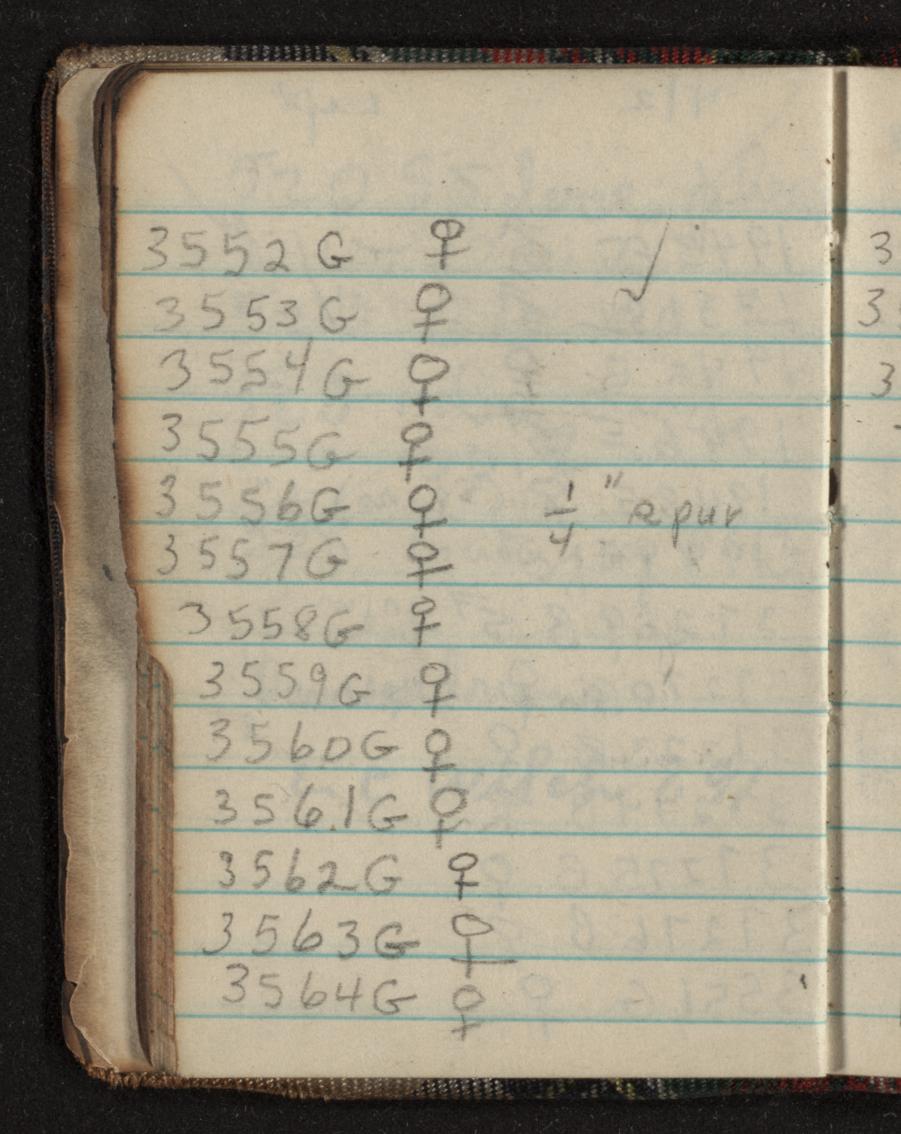 3552 G ♀ ✓
3553 G ♀
3554 G ♀
3555 G ♀
3556 G ♀ 1/4" spur
3557 G ♀
3558 G ♀
3559 G ♀
3560 G ♀
3561 G ♀
3562 G ♀
3563 G ♀
3564 G ♀
3
3
3